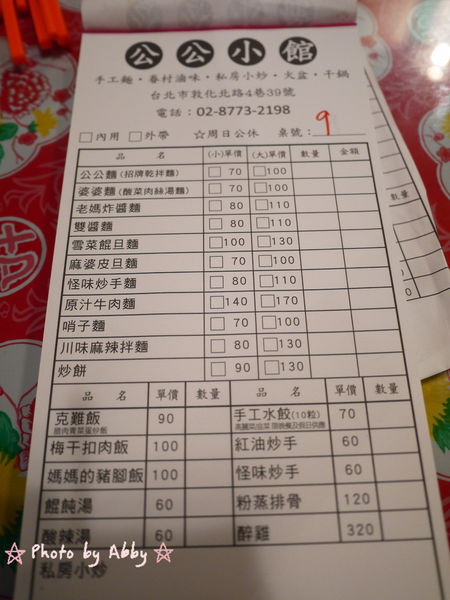 公公小館
手工麵・眷村滷味・私房小炒・火盆・干鍋
台北市敦化北路4巷39號
電話：02-8773-2198
□內用 □外帶 ☆周日公休 桌號：9
品 名 (小)單價 (大)單價 數量 金額
公公麵(招牌乾拌麵) □70 □100
婆婆麵(酸菜肉絲湯麵) □70 □100
老媽炸醬麵 □80 □110
雙醬麵 □80 □110
雪菜餛旦麵 □100 □130
麻婆皮旦麵 □70 □100
怪味炒手麵 □80 □110
原汁牛肉麵 □140 □170
哨子麵 □70 □100
川味麻辣拌麵 □80 □130
炒餅 □90 □130
品 名 單價 數量 品 名 單價 數量
克難飯 90 手工水餃(10粒) 70
臘肉青菜蛋炒飯
梅干扣肉飯 100 紅油炒手 60
媽媽的豬腳飯 100 怪味炒手 60
餛飩湯 60 粉蒸排骨 120
酸辣湯 60 醉雞 320
私房小炒
☆ Photo by Abby ☆
數量